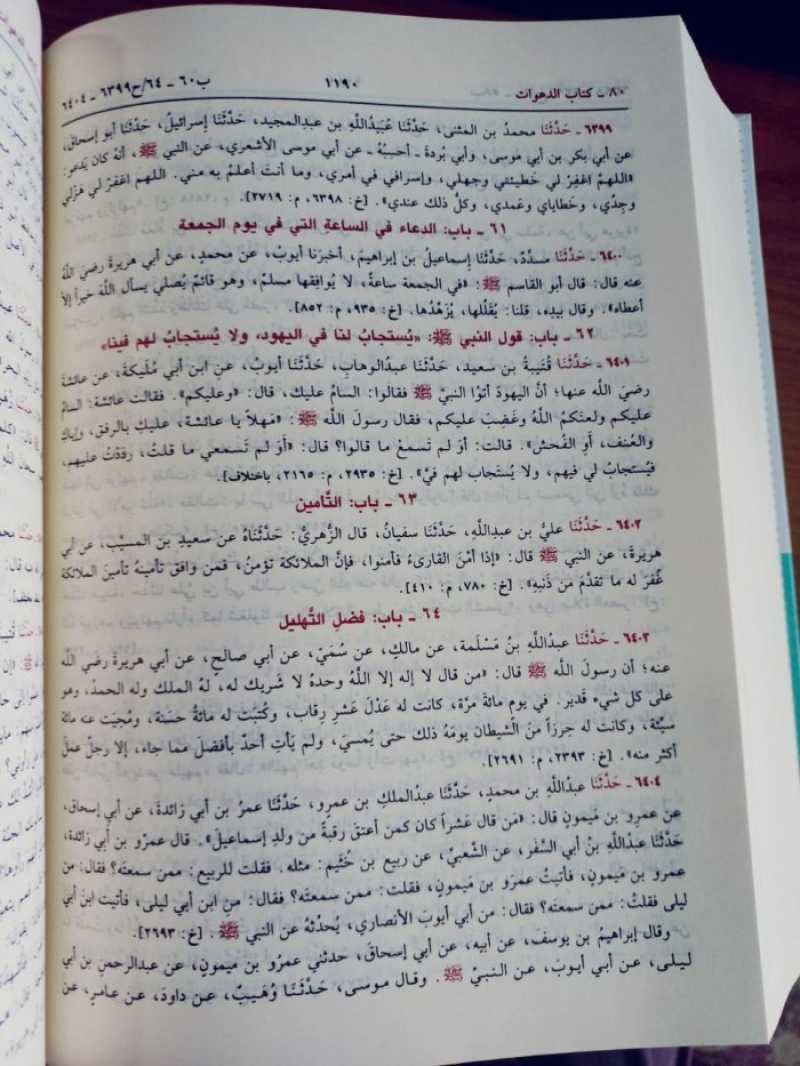 ٨٠ـ كتاب الدعوات ١١٩٠ ب٦٠ ـ ٦٤/ح٦٣٩٩ ـ ٦٤٠٤
٦٣٩٩ ـ حَدَّثَنَا محمدُ بن المثنى، حَدَّثَنَا عُبَيْدُاللَّهِ بن عبدِالمجيد، حَدَّثَنَا إسرائيلُ، حَدَّثَنَا أبو إسحاقَ،
عن أبي بكر بن أبي موسى، وأبي بُردةَ ـ أحسِبُهُ ـ عن أبي موسى الأشعري، عن النبي ﷺ، أنهُ كان يَدعو:
«اللهمَّ اغفِرْ لي خَطيئتي وجهلي، وإسرافي في أمري، وما أنتَ أعلمُ به مني. اللهم اغفر لي هَزلي
وجِدِّي، وخَطاياي وعَمدي، وكلُّ ذلك عندي». [خ: ٦٣٩٨، م: ٢٧١٩].
٦١ ـ باب: الدعاء في الساعةِ التي في يوم الجمعة
٦٤٠٠ ـ حَدَّثَنَا مسدَّدٌ، حَدَّثَنَا إسماعيلُ بن إبراهيمَ، أخبرَنا أيوبُ، عن محمدٍ، عن أبي هريرةَ رضيَ اللَّهُ
عنه قال: قال أبو القاسم ﷺ: «في الجمعة ساعةٌ، لا يُوافِقها مسلمٌ، وهو قائمٌ يُصلِّي يسأل اللَّهَ خيراً إلاَّ
أعطاه». وقال بيدِه، قلنا: يُقَلِّلها، يُزَهِّدُها. [خ: ٩٣٥، م: ٨٥٢].
٦٢ ـ باب: قول النبيِّ ﷺ: «يُستجابُ لنا في اليهود، ولا يُستجابُ لهم فينا»
٦٤٠١ ـ حَدَّثَنَا قُتَيبةُ بن سعيد، حَدَّثَنَا عبدُالوهابِ، حَدَّثَنَا أيوبُ، عنِ ابن أبي مُلَيكةَ، عن عائشةَ
رضيَ اللَّه عنها؛ أنَّ اليهودَ أتوُا النبيَّ ﷺ فقالوا: السامُ عليك، قال: «وعليكم». فقالت عائشة: السامُ
عليكم ولعنكمُ اللَّهُ وغَضِبَ عليكم، فقال رسولُ اللَّه ﷺ: «مَهلاً يا عائشة، عليكِ بالرفق، وإياكِ
والعُنف، أوِ الفُحش». قالت: أوَ لم تَسمعْ ما قالوا؟ قال: «أوَ لم تَسمعي ما قلتُ، ردَدْتُ عليهم،
فيُستجابُ لي فيهم، ولا يُستَجاب لهم فيَّ». [خ: ٢٩٣٥، م: ٢١٦٥، باختلاف].
٦٣ ـ باب: التَّأمين
٦٤٠٢ ـ حَدَّثَنَا عليُّ بن عبدِاللَّهِ، حَدَّثَنَا سفيانُ، قال الزُّهريُّ: حَدَّثَنَاهُ عن سعيدِ بن المسيَّب، عن أبي
هريرةَ، عن النبي ﷺ قال: «إذا أمَّنَ القارىءُ فأمنوا، فإنَّ الملائكة تؤمِّنُ، فمن وافق تأمينهُ تأمينَ الملائكة
غُفرَ له ما تقدَّمَ من ذَنبهِ». [خ: ٧٨٠، م: ٤١٠].
٦٤ ـ باب: فضلِ التَّهليل
٦٤٠٣ ـ حَدَّثَنَا عبدُاللَّهِ بنُ مَسْلَمة، عن مالكٍ، عن سُمَيّ، عن أبي صالحٍ، عن أبي هريرةَ رضي اللَّه
عنه؛ أن رسولَ اللَّه ﷺ قال: «من قال لا إله إلا اللَّهُ وحدهُ لا شريك له، لهُ الملك وله الحمدُ، وهو
على كل شيءٍ قَدير. في يوم مائةَ مرَّة، كانت له عَدْلَ عَشرِ رِقاب، وكُتبَت له مائةُ حسَنة، ومُحِيَت عنه مائة
سيِّئة، وكانت له حِرزاً منَ الشيطان يومَهُ ذلك حتى يُمسيَ، ولم يَأتِ أحدٌ بأفضلَ مما جاء، إلا رجلٌ عمل
أكثر منه». [خ: ٢٣٩٣، م: ٢٦٩١].
٦٤٠٤ ـ حَدَّثَنَا عبدُاللَّهِ بن محمدٍ، حَدَّثَنَا عبدُالملكِ بن عمرٍو، حَدَّثَنَا عمرُ بن أبي زائدةَ، عن أبي إسحاق،
عن عمرِو بن مَيمونٍ قال: «مَن قال عَشراً كان كمن أعتقَ رقبةً من ولدِ إسماعيلَ». قال عمرُو بن أبي زائدة،
حَدَّثَنَا عبدُاللَّهِ بنُ أبي السَّفَر، عن الشَّعبيِّ، عن ربيع بن خُثَيم: مثله. فقلت للربيع: ممن سمعتَه؟ فقال: من
عمرو بن مَيمونٍ، فأتيتُ عمرَو بن مَيمونٍ، فقلت: ممن سمعتَه؟ فقال: منِ ابن أبي ليلى، فأتيت ابنَ أبي
ليلى فقلتُ: ممن سمعتَه؟ فقال: من أبي أيوبَ الأنصاري، يُحدِّثهُ عن النبي ﷺ. [خ: ٢٦٩٣].
وقال إبراهيمُ بن يوسفَ، عن أبيه، عن أبي إسحاقَ، حدثني عمرُو بن ميمونٍ، عن عبدالرحمنِ بن أبي
ليلى، عن أبي أيوبَ، عن النبيِّ ﷺ. وقال موسى، حَدَّثَنَا وُهَيبٌ، عن داودَ، عن عامرٍ، عن